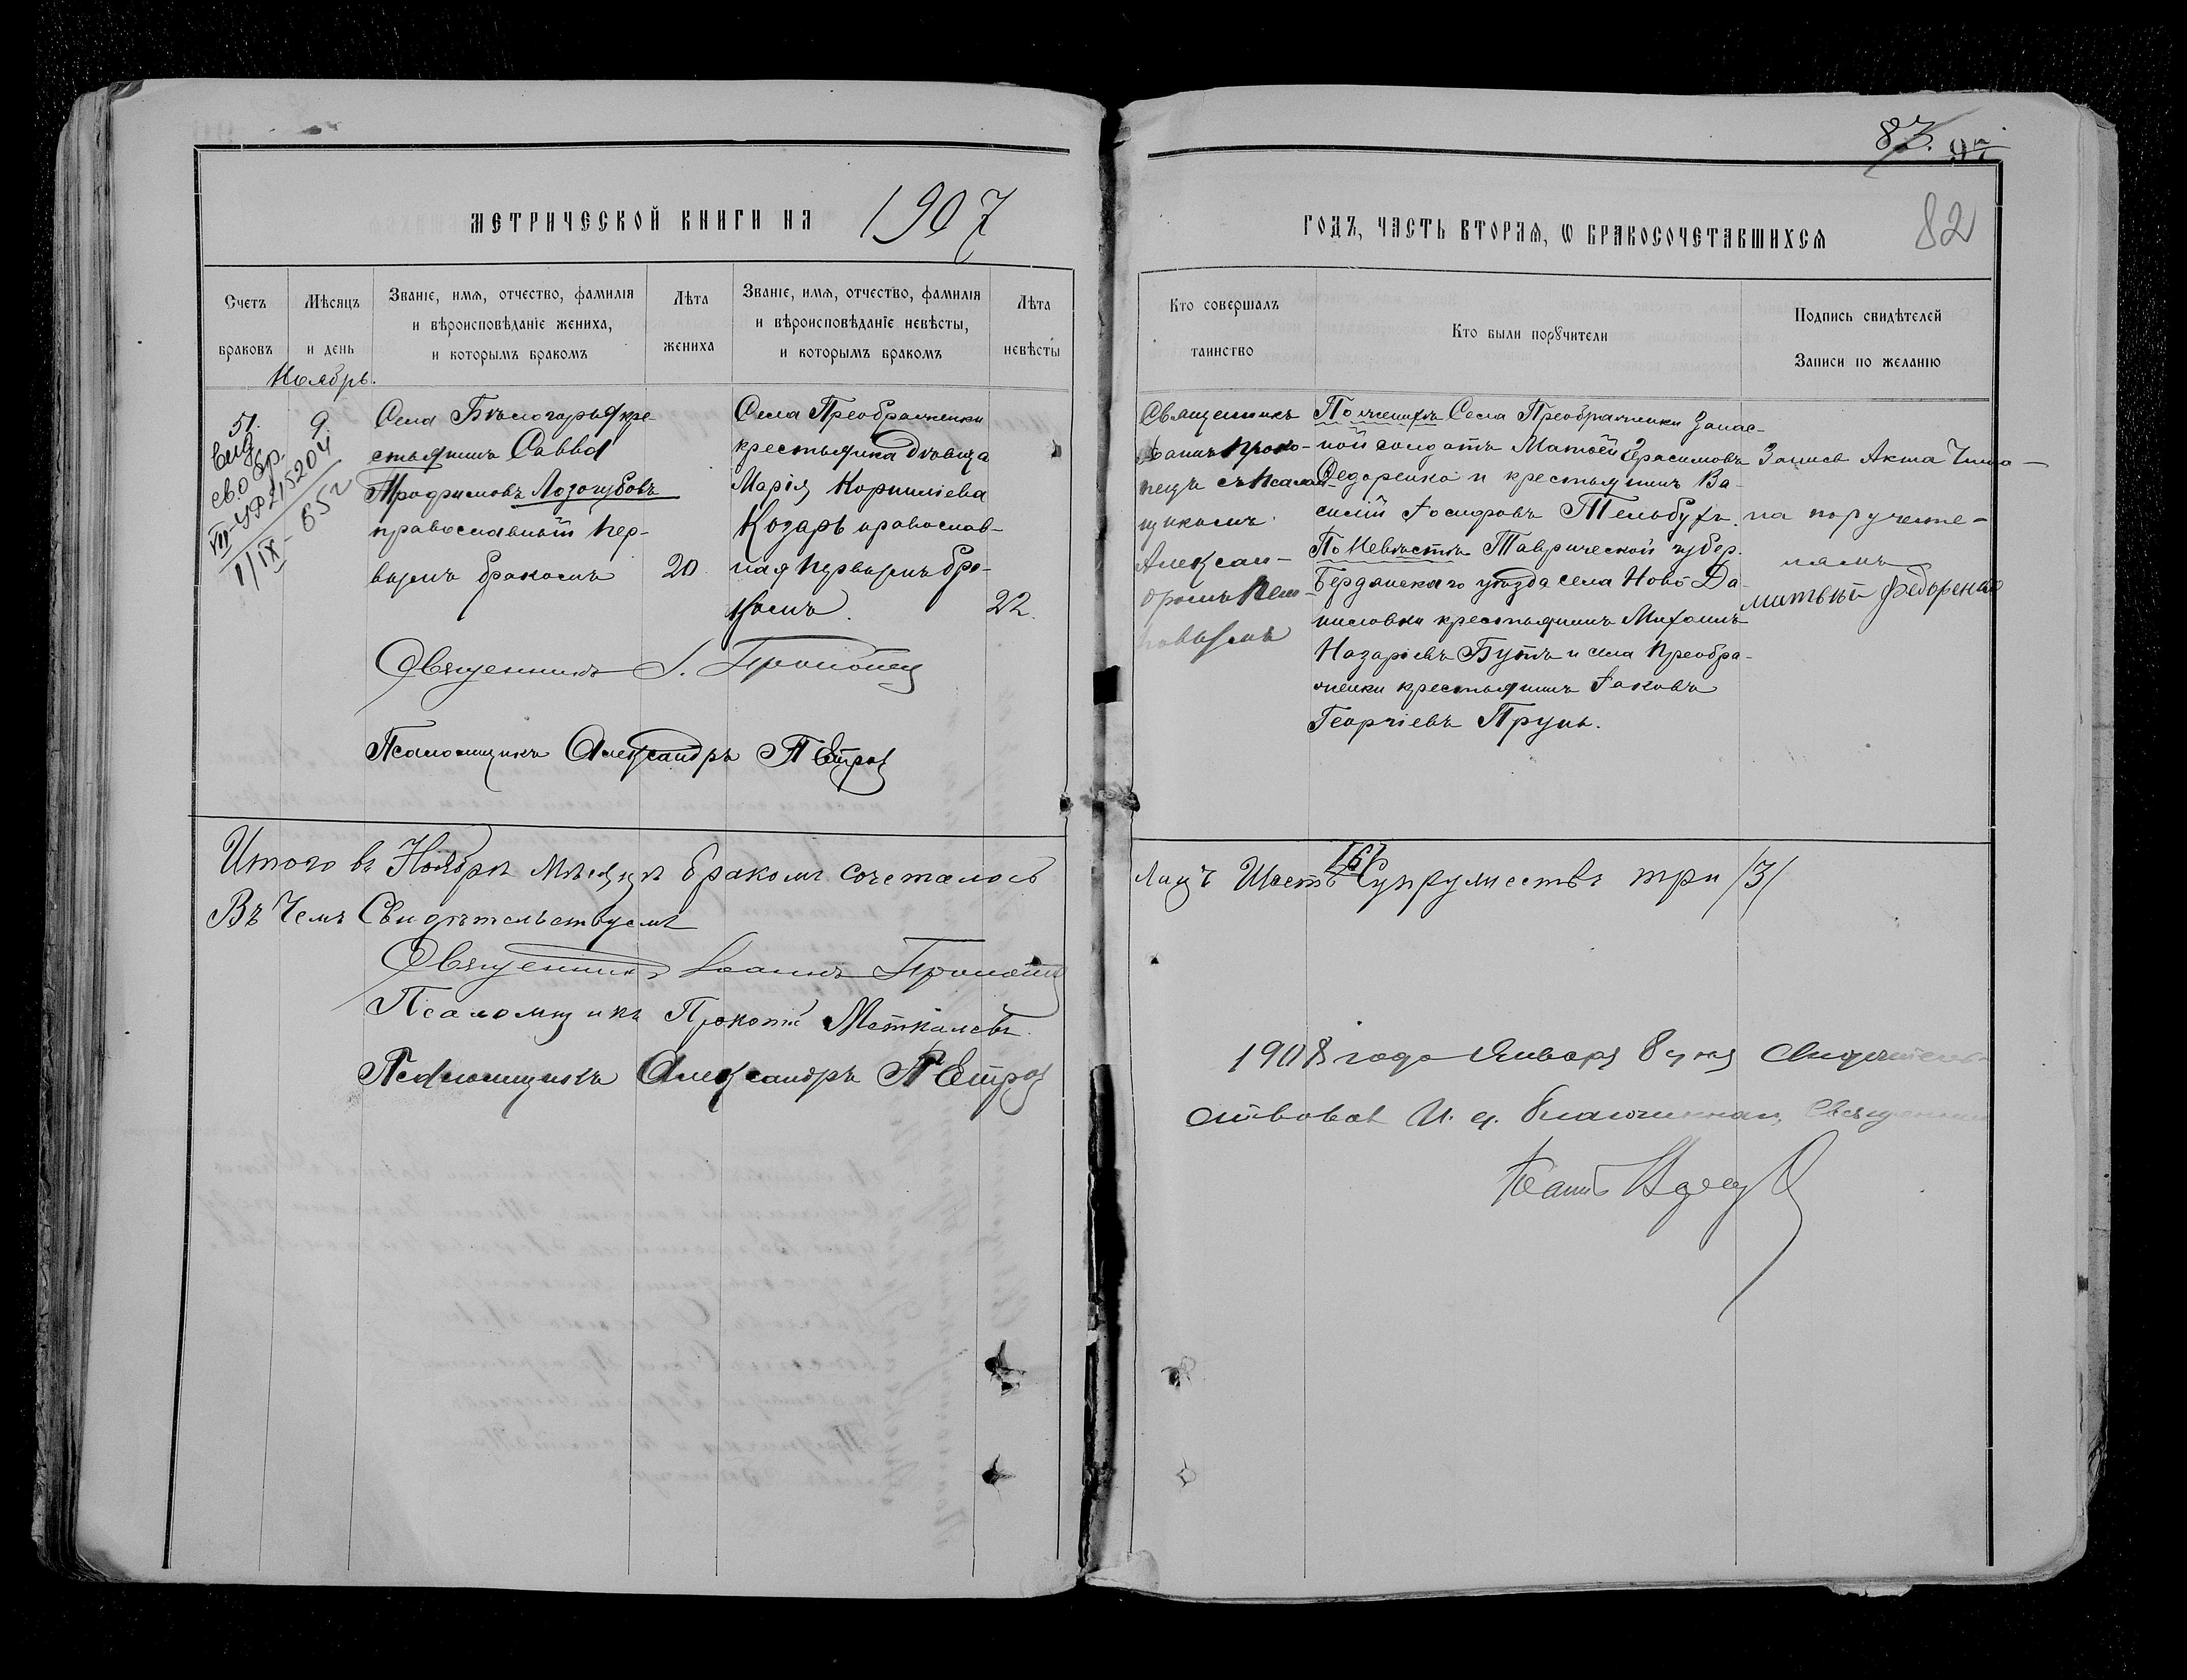 87. 97
МЕТРИЧЕСКОЙ КНИГИ НА 1907
ГОДЪ, ЧАСТЬ ВТОРАЯ, Ѡ БРАКОСОЧЕТАВШИХСЯ
82
Счетъ браковъ
Мѣсяцъ и день
Званіе, имя, отчество, фамилія
и вѣроисповѣданіе жениха,
и которымъ бракомъ
Лѣта жениха
Званіе, имя, отчество, фамилія
и вѣроисповѣданіе невѣсты,
и которымъ бракомъ
Лѣта невѣсты
Кто совершалъ таинство
Кто были порꙋчители
Подпись свидѣтелей
Записи по желанію
Ноябрь.
51.
9.
выд
св. о бр.
VII-УР 215204
1/IX-65г
Села Бѣлогорья кре-
стьянинъ Савва
Трофимовъ Лозогубовъ
православный пер-
вымъ бракомъ
20
Села Преображенки
крестьянка дѣвица
Марія Корниліева
Козарь православ-
ная первымъ бра-
комъ.
22.
Священникъ І. Прокопец
Псаломщикъ Александръ Петров
Священникъ
Іоаннъ Проко-
пецъ съ Псалом-
щикомъ
Алексан-
дромъ Пет-
ровымъ
По женихѣ Села Преображенки Запас-
ной солдатъ Матѳей Герасимовъ
Федоренко и крестьянинъ Ва-
силій Іосифовъ Тельбухъ.
По Невѣстѣ Таврической губер.
Бердянскаго уѣзда села Ново Да-
ниловки крестьянинъ Михаилъ
Назаріевъ Бутъ и села Преобра-
женки крестьянинъ Іаковъ
Георгіевъ Прунь.
Запись Акта Чита-
на поручите-
лямъ
матвѣй Федоренко
Итого въ Ноябрѣ мѣсяцѣ бракомъ сочеталось
лицъ Шесть /6/ Супружествъ три /3/
Въ Чемъ Свидѣтельствуемъ
Священникъ Іоаннъ Прокопец
Псаломщикъ Прокопій Меткалевъ
Псаломщикъ Александръ Петров
1908 года Января 8 дня Свидѣтель-
ствовал И. д. благочиннаго, Священник
Іоаннъ